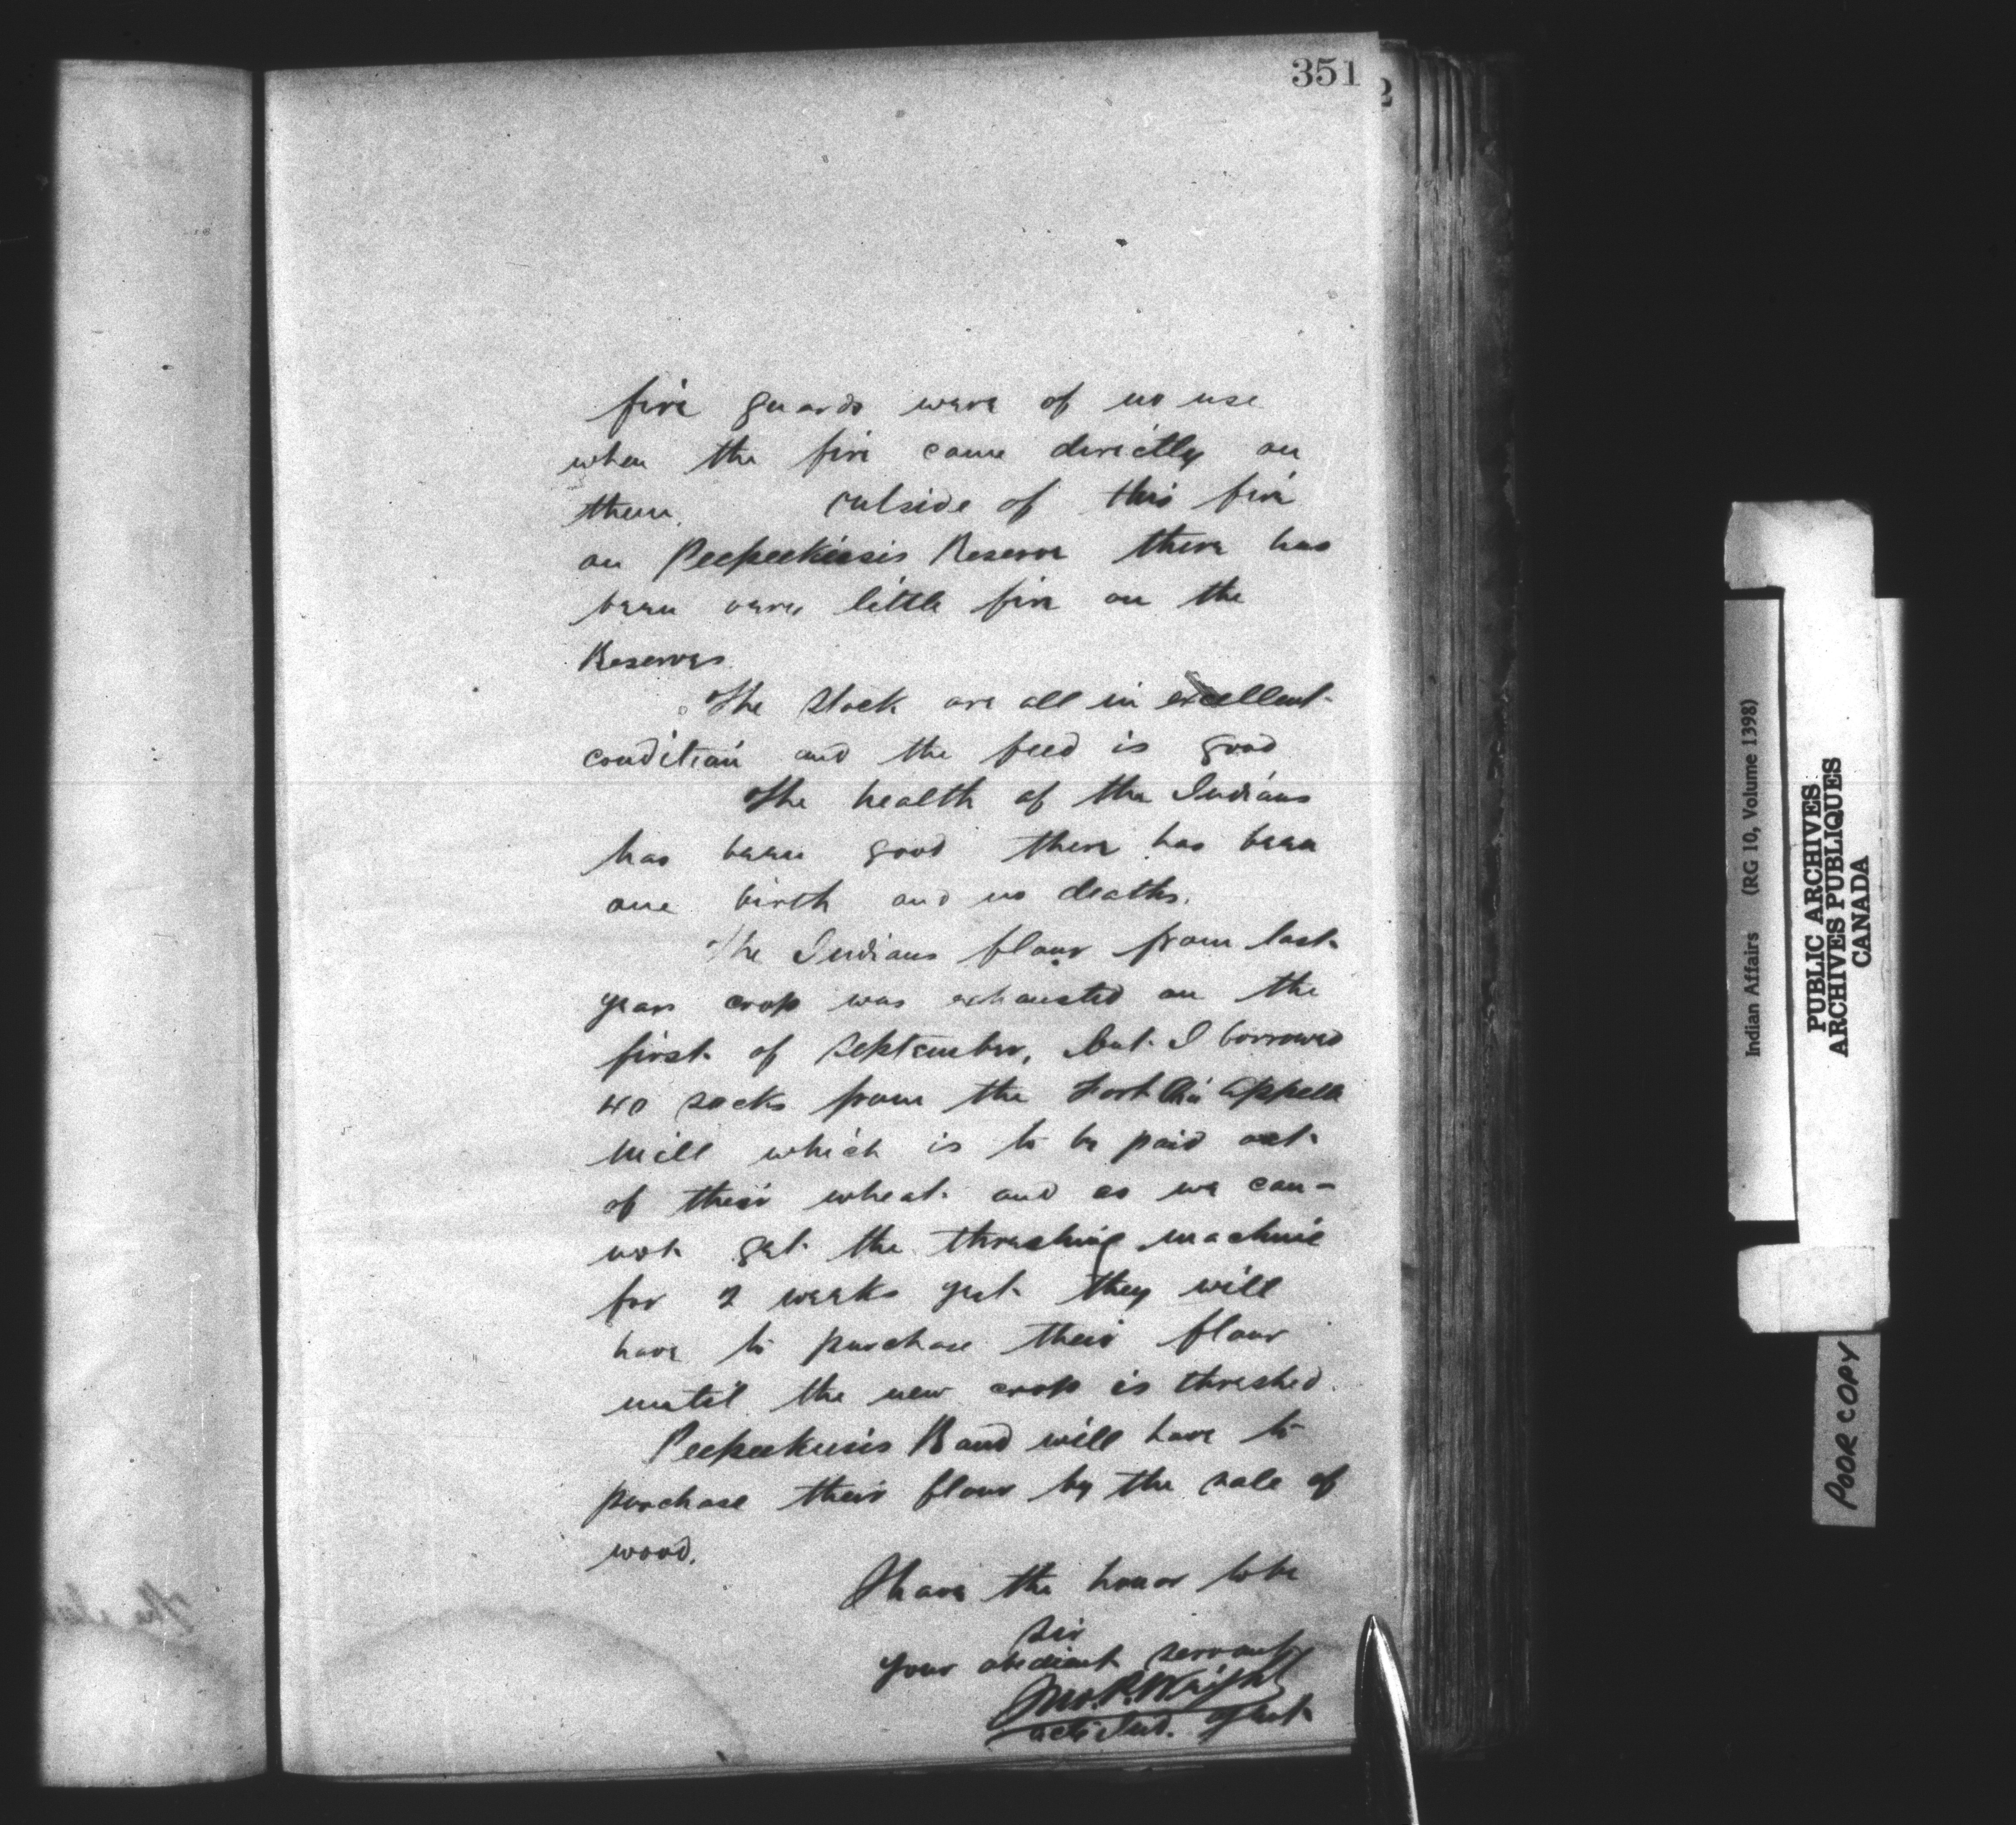 351
2
fire guards were of no use
when the fire came directly on
them. outside of this fire
on Peepeekeesis Reserve there has
been very little fire on the
Reserves
The stock are all in excellent
condition and the feed is good
The health of the Indians
has been good there has been
one birth and no deaths.
The Indians flour from last
years crop was exhausted on the
first of September, but I borrowed
40 sacks from the Fort Qu'appelle
mill which is to be paid out
of their wheat and as we can-
not get the threshing machine
for 2 weeks yet they will
have to purchase their flour
until the new crop is threshed.
Peepeekeesis Band will have to
purchase their flour by the sale of
wood.
I have the honor to be
Sir
your obedient servant
Jno. P. Wright
actg Ind. Agent
Indian Affairs (RG 10, Volume 1398)
PUBLIC ARCHIVES
ARCHIVES PUBLIQUES
CANADA
POOR COPY